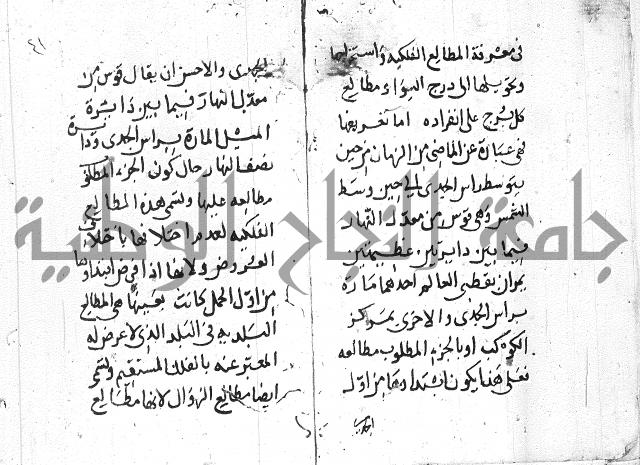 في معرفة المطالع الفلكيه واستوائها
وتحويلها الى درج السواء ومطالع
كل برج على انفراده اما تعريفها
فهي عبارة عن الماضي من الزمان من حين
توسط راس الجدى الى حين وسط
الشمس وهي قوس من معدل النهار
فيما بين دايرتين عظيمتين
يمران بقطبي العالم احدهما مارة
براس الجدى والاخرى بمركز
الكوكب او بالجزء المطلوب مطالعه
فعلى هذا يكون ابتداوها من اول
الجدى
٤١
الجدى والاحسن ان يقال قوس من
معدل النهار فيما بين دائرة
الميل المارة براس الجدى ودائرة
نصف النهار حال كون الجزء المطلوب
مطالعه عليها وتسمى هذه المطالع
الفلكيه لعدم اختلافها باختلاف
العروض ولانها اذا فرض ابتداوها
من اول الحمل كانت بعينها هي المطالع
البلديه في البلد الذى لا عرض له
المعتبر عنه بالفلك المستقيم وتسمى
ايضا مطالع الزوال لانها مطالع
جامعة النجاح الوطنية